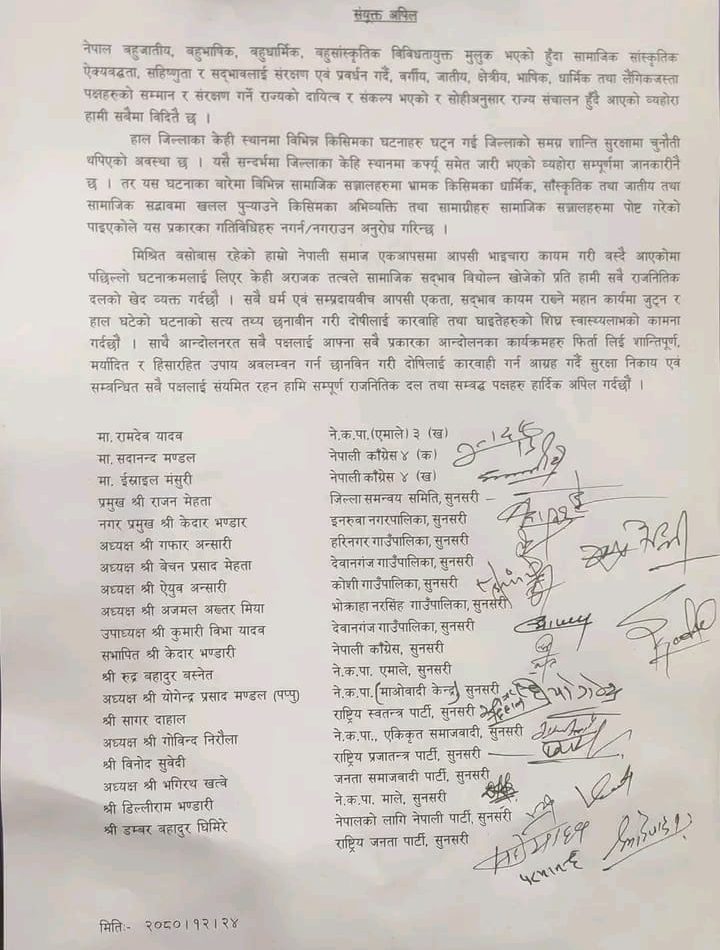 संयुक्त अपिल
नेपाल बहुजातीय, बहुभाषिक, बहुधार्मिक, बहुसांस्कृतिक विविधतायुक्त मुलुक भएको हुँदा सामाजिक सांस्कृतिक
ऐक्यवद्धता, सहिष्णुता र सद्भावलाई संरक्षण एवं प्रवर्धन गर्दै, वर्गीय, जातीय, क्षेत्रीय, भाषिक, धार्मिक तथा लैंगिकजस्ता
पक्षहरुको सम्मान र संरक्षण गर्ने राज्यको दायित्व र संकल्प भएको र सोहीअनुसार राज्य संचालन हुँदै आएको व्यहोरा
हामी सबैमा विदितै छ ।
हाल जिल्लाका केही स्थानमा विभिन्न किसिमका घटनाहरु घट्न गई जिल्लाको समग्र शान्ति सुरक्षामा चुनौती
थपिएको अवस्था छ । यसै सन्दर्भमा जिल्लाका केहि स्थानमा कर्फ्यू समेत जारी भएको व्यहोरा सम्पूर्णमा जानकारीनै
छ । तर यस घटनाका बारेमा विभिन्न सामाजिक सञ्जालहरुमा भ्रामक किसिमका धार्मिक, साँस्कृतिक तथा जातीय तथा
सामाजिक सद्भावमा खलल पुऱ्याउने किसिमका अभिव्यक्ति तथा सामाग्रीहरु सामाजिक सञ्जालहरुमा पोष्ट गरेको
पाइएकोले यस प्रकारका गतिविधिहरु नगर्न/नगराउन अनुरोध गरिन्छ ।
मिश्रित बसोबास रहेको हाम्रो नेपाली समाज एकआपसमा आपसी भाइचारा कायम गरी बस्दै आएकोमा
पछिल्लो घटनाक्रमलाई लिएर केही अराजक तत्वले सामाजिक सद्भाव विथोल्न खोजेको प्रति हामी सबै राजनितिक
दलको खेद व्यक्त गर्दछौं । सबै धर्म एवं सम्प्रदायबीच आपसी एकता, सद्भाव कायम राख्ने महान कार्यमा जुट्न र
हाल घटेको घटनाको सत्य तथ्य छनावीन गरी दोषीलाई कारवाहि तथा घाइतेहरुको शिघ्र स्वास्थ्यलाभको कामना
गर्दछौं । साथै आन्दोलनरत सबै पक्षलाई आफ्ना सबै प्रकारका आन्दोलनका कार्यक्रमहरु फिर्ता लिई शान्तिपूर्ण,
मर्यादित र हिंसारहित उपाय अवलम्वन गर्न छानविन गरी दोषिलाई कारवाही गर्न आग्रह गर्दै सुरक्षा निकाय एवं
सम्वन्धित सबै पक्षलाई संयमित रहन हामि सम्पूर्ण राजनितिक दल तथा सम्वद्ध पक्षहरु हार्दिक अपिल गर्दछौं ।
मा. रामदेव यादव ने.क.पा.(एमाले) ३ (ख)
मा. सदानन्द मण्डल नेपाली काँग्रेस ४ (क)
मा. ईस्राइल मंसुरी नेपाली काँग्रेस ४ (ख)
प्रमुख श्री राजन मेहता जिल्ला समन्वय समिति, सुनसरी
नगर प्रमुख श्री केदार भण्डार इनरुवा नगरपालिका, सुनसरी
अध्यक्ष श्री गफार अन्सारी हरिनगर गाउँपालिका, सुनसरी
अध्यक्ष श्री बेचन प्रसाद मेहता देवानगंज गाउँपालिका, सुनसरी
अध्यक्ष श्री ऐयुव अन्सारी कोशी गाउँपालिका, सुनसरी
अध्यक्ष श्री अजमल अख्तर मिया भोक्राहा नरसिंह गाउँपालिका, सुनसरी
उपाध्यक्ष श्री कुमारी विभा यादव देवानगंज गाउँपालिका, सुनसरी
सभापित श्री केदार भण्डारी नेपाली काँग्रेस, सुनसरी
श्री रुद्र बहादुर बस्नेत ने.क.पा. एमाले, सुनसरी
अध्यक्ष श्री योगेन्द्र प्रसाद मण्डल (पप्पु) ने.क.पा.(माओवादी केन्द्र) सुनसरी
श्री सागर दाहाल राष्ट्रिय स्वतन्त्र पार्टी, सुनसरी
अध्यक्ष श्री गोविन्द निरौला ने.क.पा., एकिकृत समाजवादी, सुनसरी
श्री विनोद सुवेदी राष्ट्रिय प्रजातन्त्र पार्टी, सुनसरी
अध्यक्ष श्री भगिरथ खत्वे जनता समाजवादी पार्टी, सुनसरी
श्री डिल्लीराम भण्डारी ने.क.पा. माले, सुनसरी
श्री डम्बर बहादुर घिमिरे नेपालको लागि नेपाली पार्टी, सुनसरी
राष्ट्रिय जनता पार्टी, सुनसरी
मितिः- २०८०।१२।२४